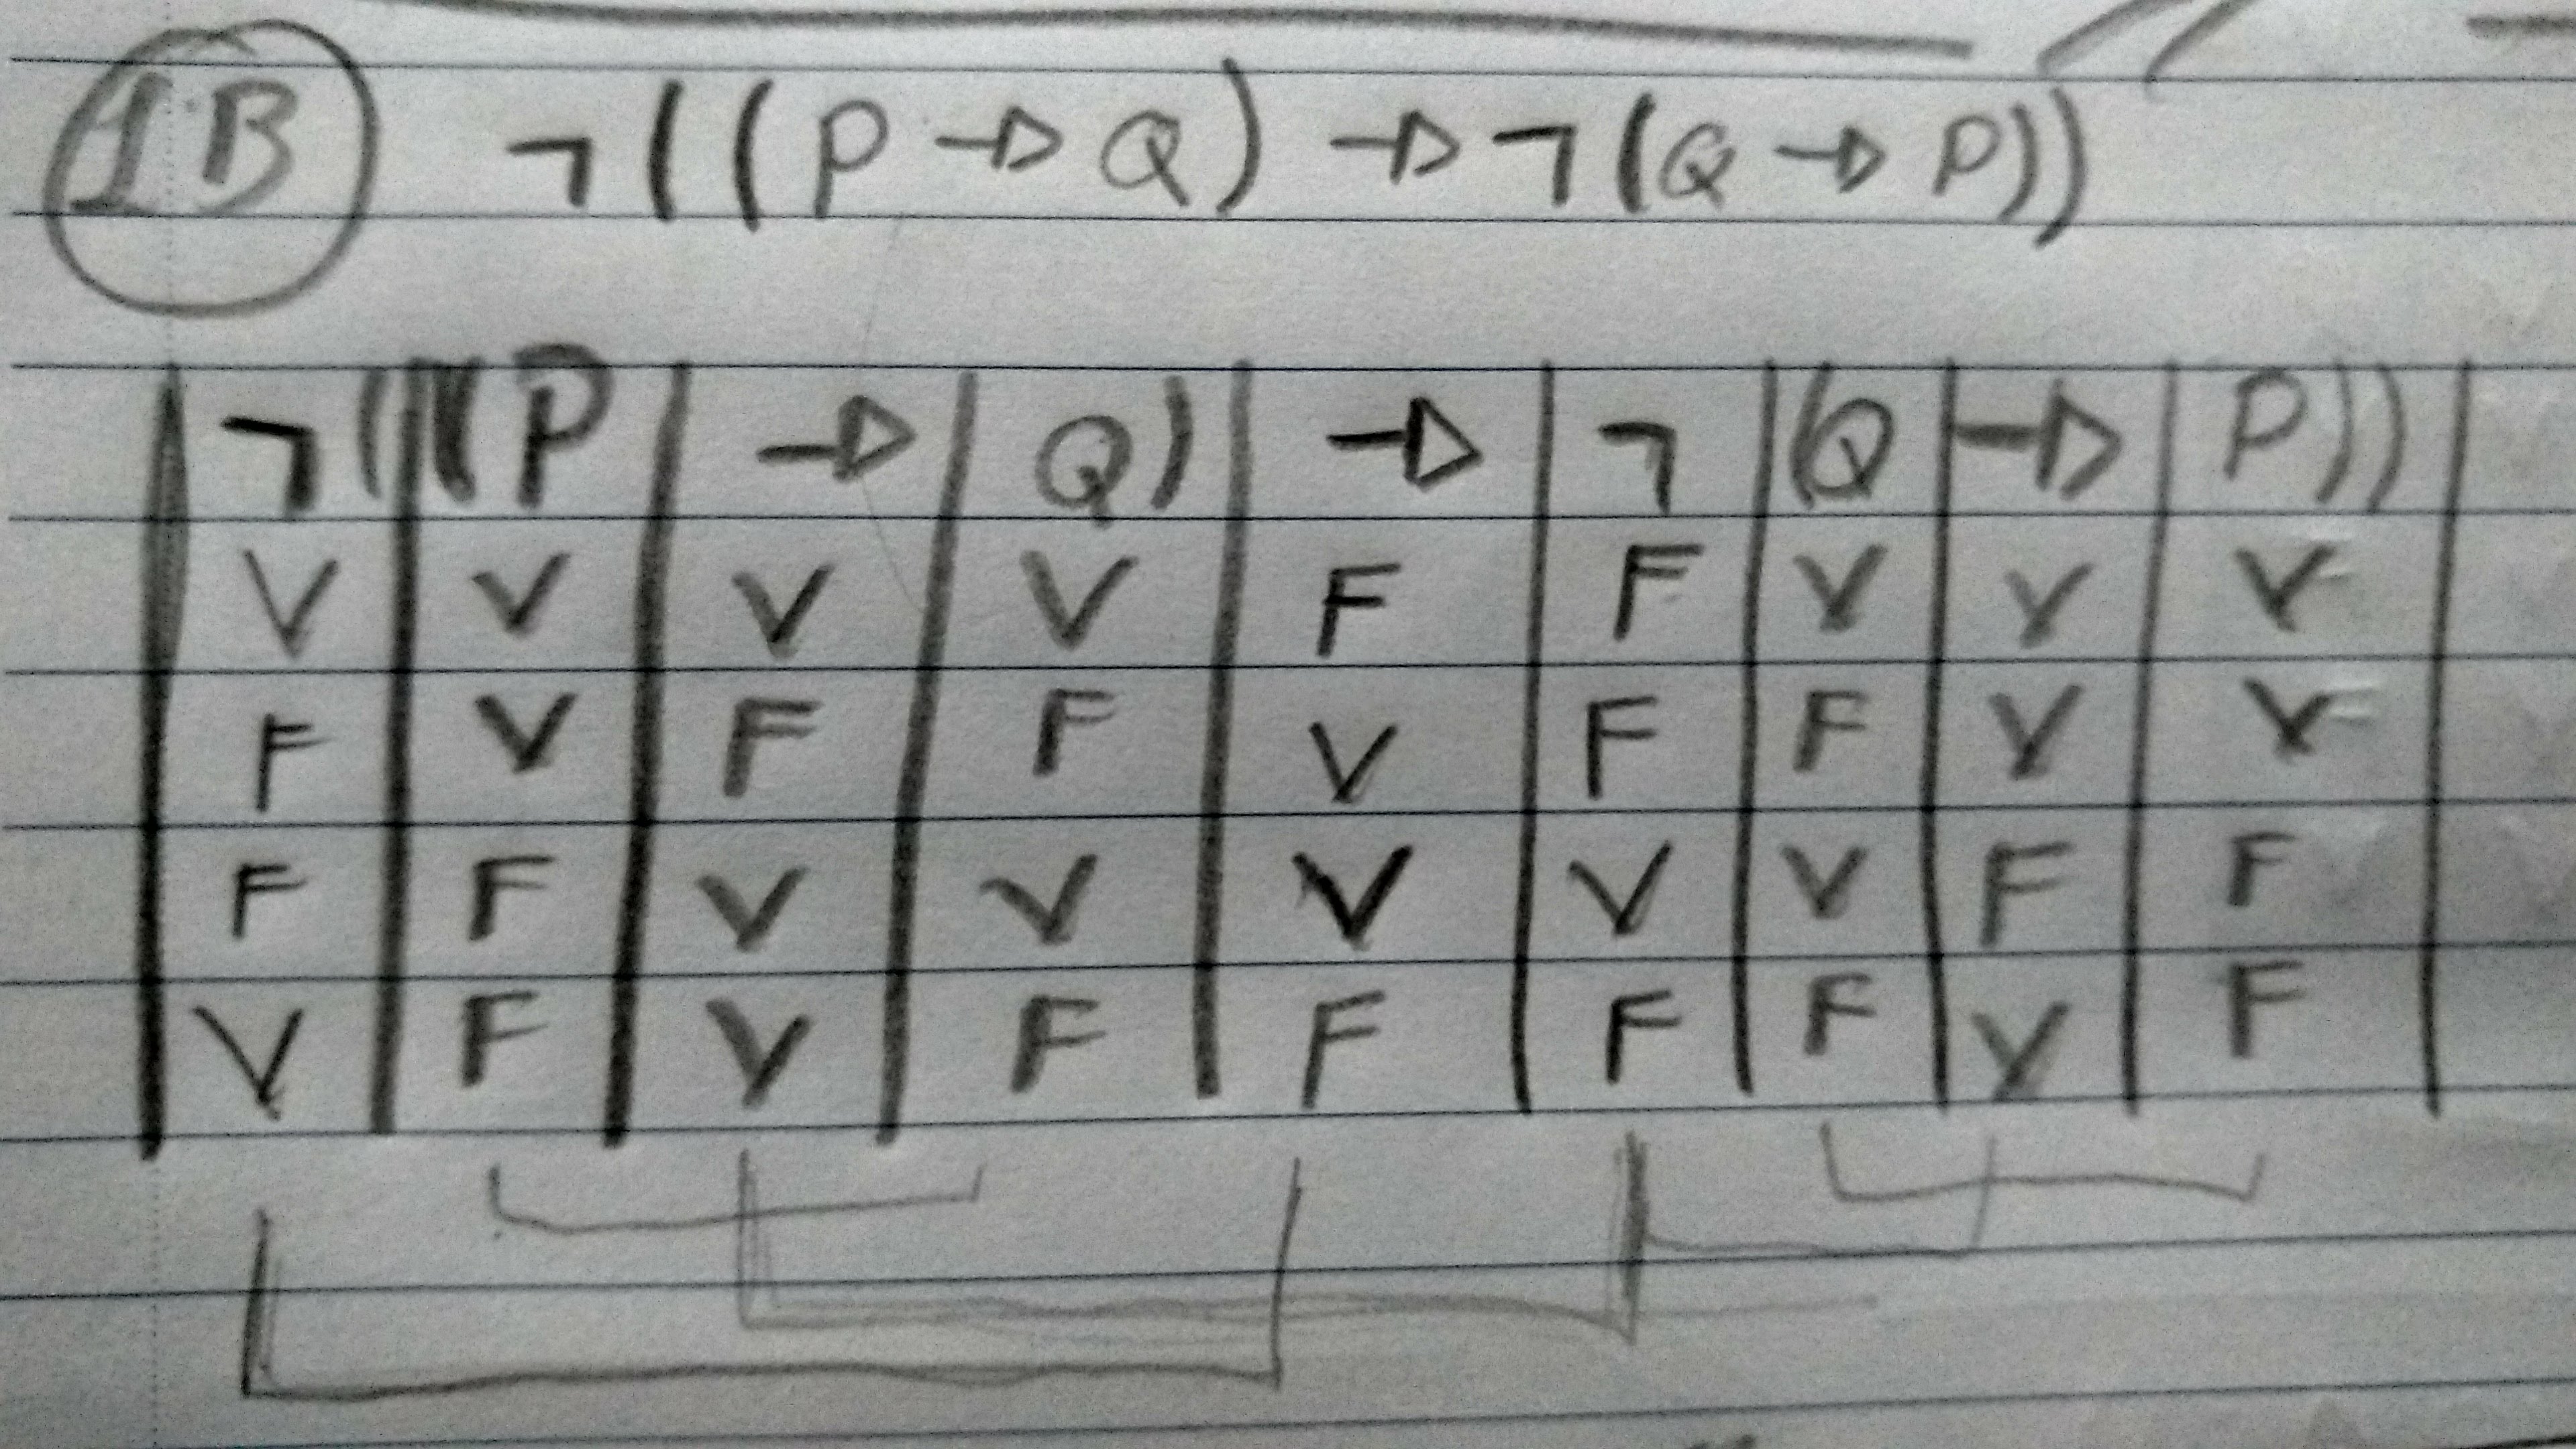 1B ¬((P → Q) → ¬(Q → P))
¬( (P → Q) → ¬ (Q → P))
V V V V F F V V V
F V F F V F F V V
F F V V V V V F F
V F V F F F F V F